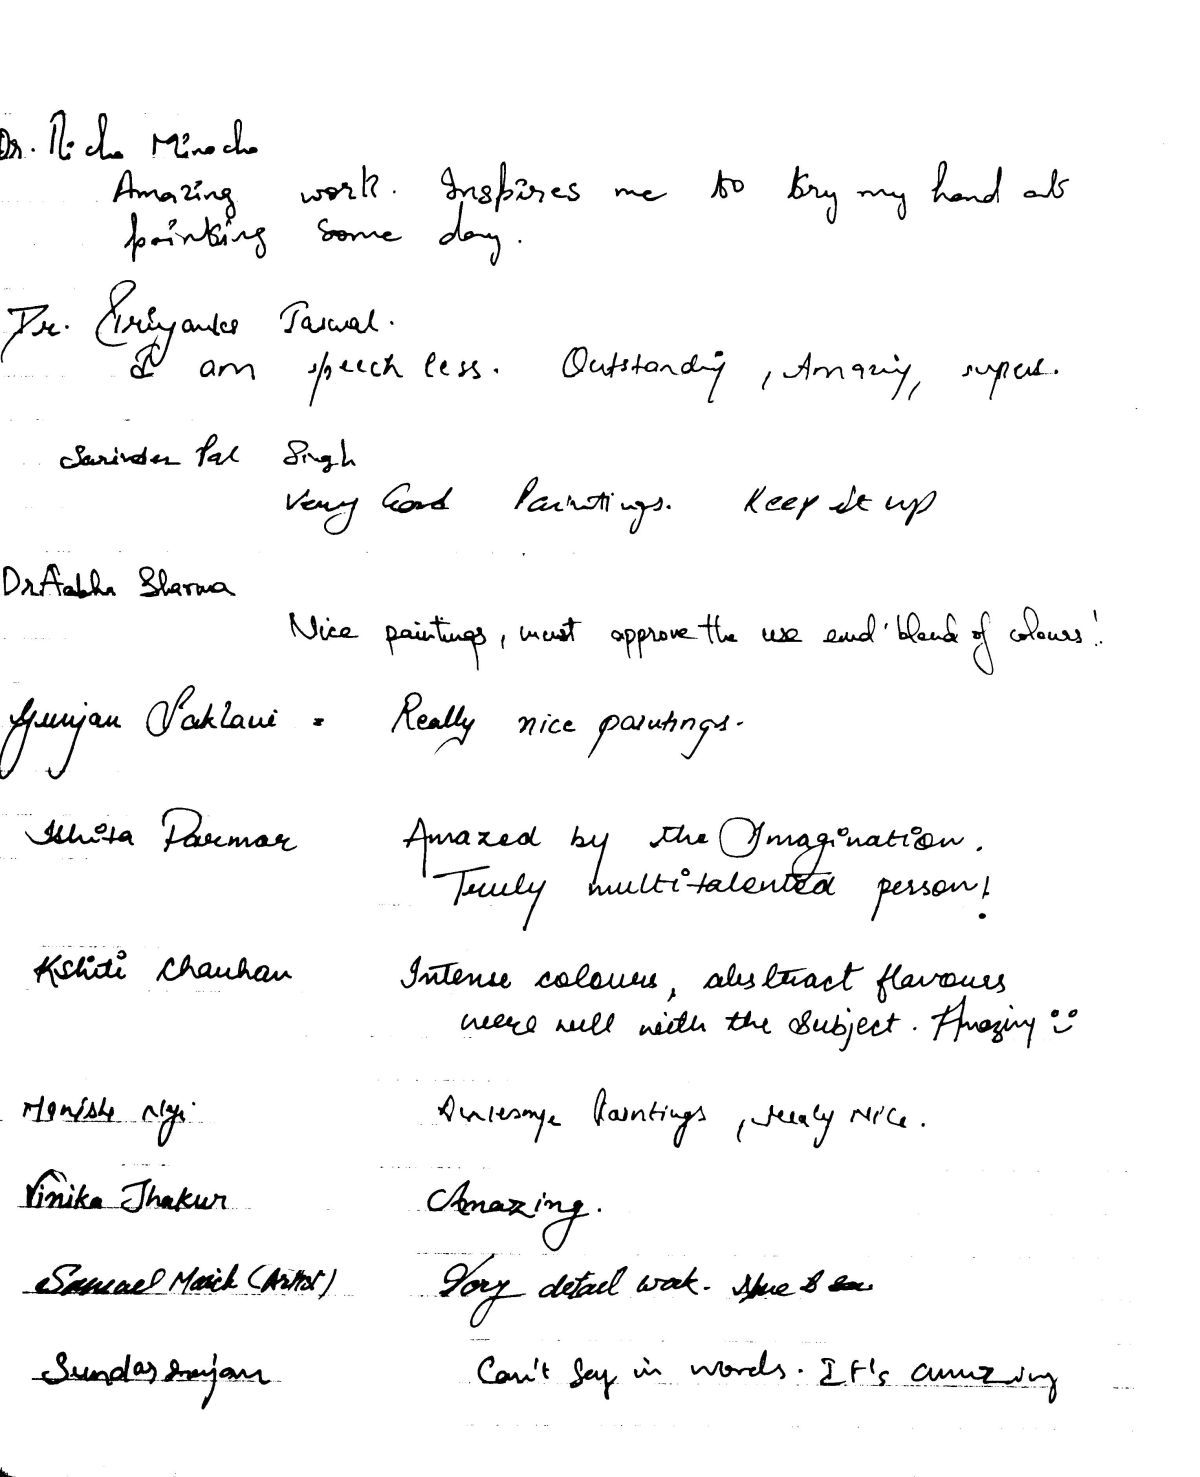 Dr. Richa Minocha
Amazing work. Inspires me to try my hand at
painting some day.
Dr. Priyanka Jaswal.
I am speechless. Outstanding, Amazing, super.
Surinder Pal Singh
Very Good Paintings. Keep it up
Dr Aabha Sharma
Nice paintings, must approve the use and 'blend of colours'!
Gunjan Saklani - Really nice paintings.
Ishita Parmar Amazed by the Imagination.
Truly multitalented person!
Kshiti Chauhan Intense colours, abstract flavours
were well with the subject. Amazing
Manisha Negi Awesome Paintings, really Nice.
Vinika Thakur Amazing.
Samuel (Artist) Very detail work.
Can't say in words. It's amazing